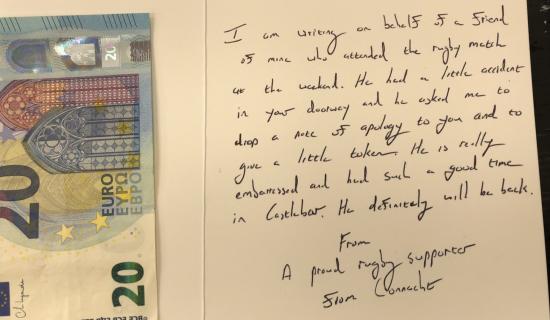 20
EURO
ΕΥΡΩ
ЕВРО
20
20
I am writing on behalf of a friend
of mine who attended the rugby match
at the weekend. He had a little accident
in your doorway and he asked me to
drop a note of apology to you and to
give a little token. He is really
embarrassed and had such a good time
in Castlebar. He definitely will be back.
From
A proud rugby supporter
From Connacht